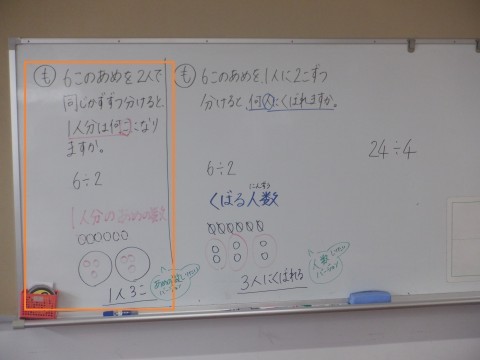 も 6このあめを2人で
同じかずずつ分けると
1人分は何こになり
ますか。
6÷2
1人分のあめの数
1人3こ
も 6このあめを、1人に2こずつ
分けると何人にくばれますか。
6÷2
くばる人数
(にんずう)
3人にくばれる
24÷4